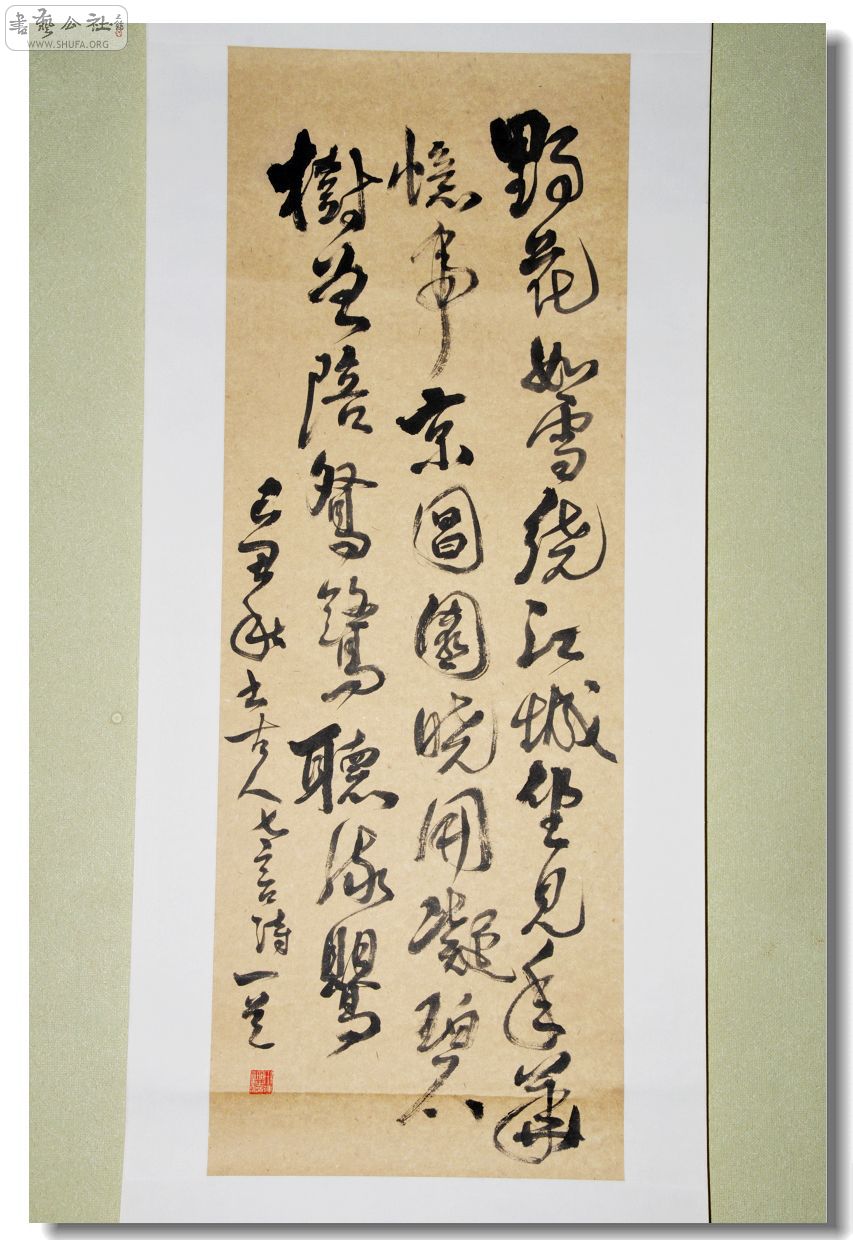 書藝公社
WWW.SHUFA.ORG
野花如雪繞江城坐見年華
憶帝京閶闔曉開凝碧
樹曾陪鴛鷺聽流鶯
己丑秋書古人七言詩一